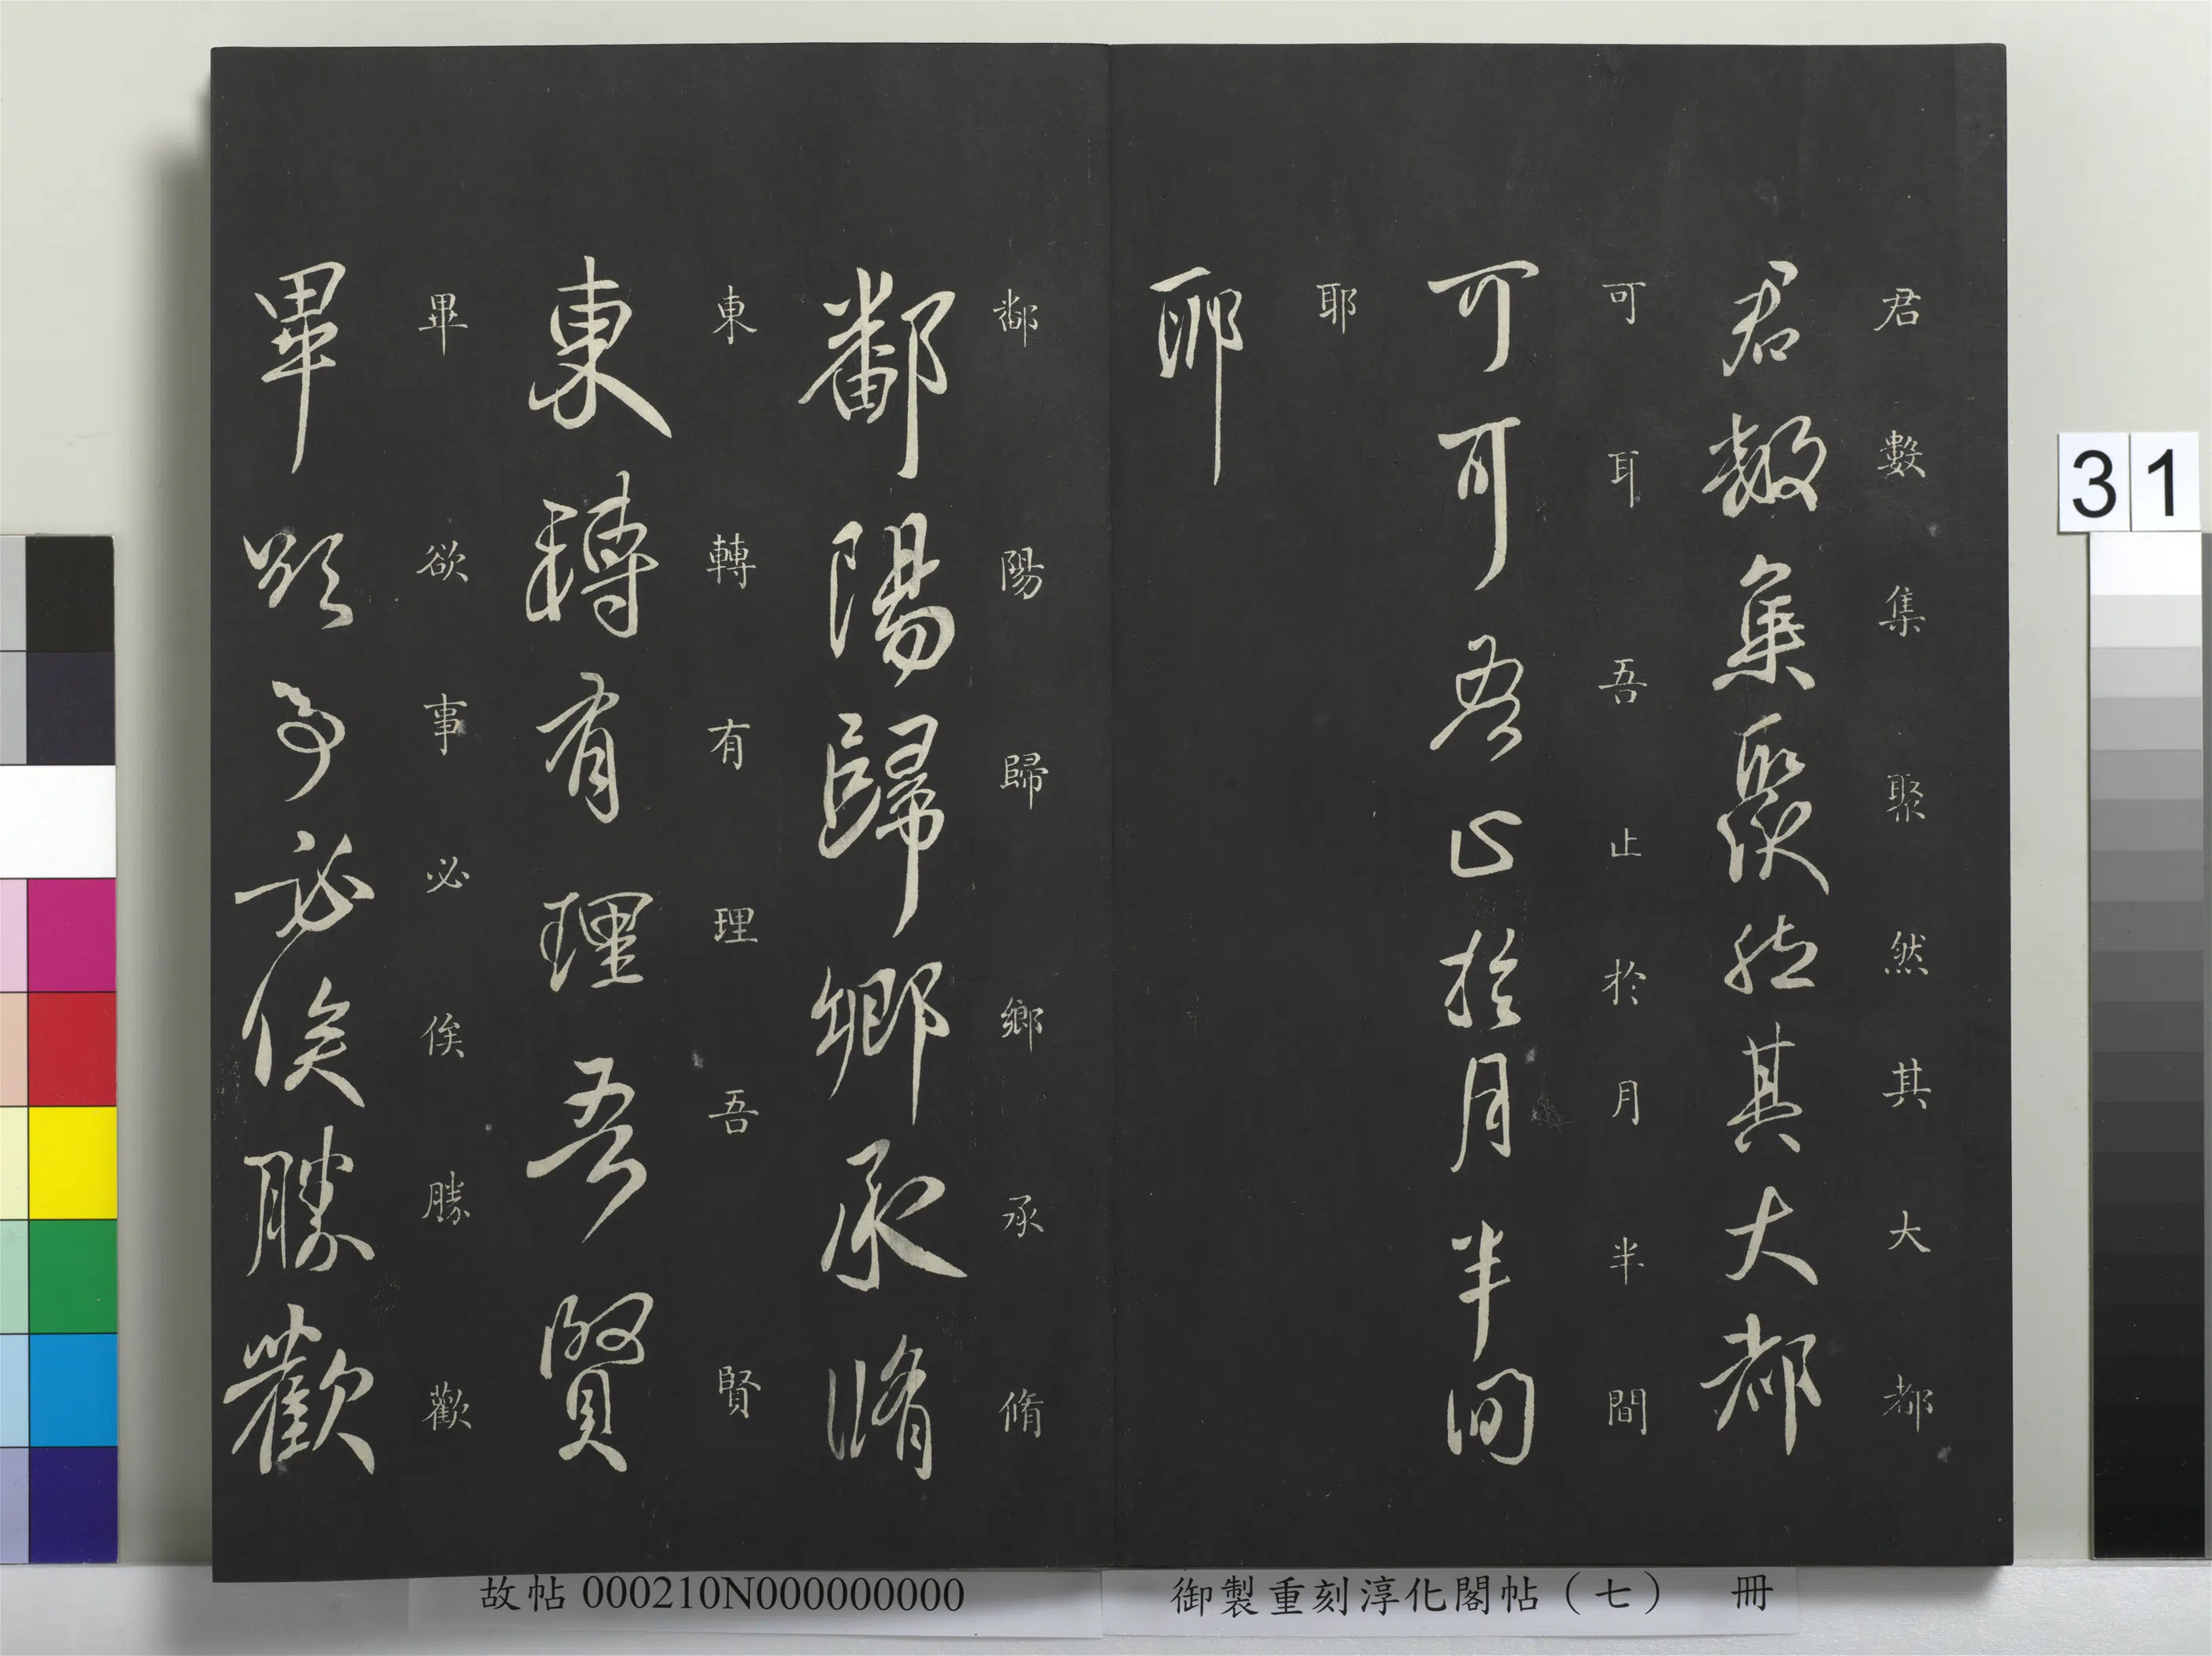 君數集聚然其大都
君數集聚然其大都
可耳吾止於月半間
可耳吾止於月半間
耶
耶
鄱陽歸鄉承脩
鄱陽歸鄉承脩
東轉有理吾賢
東轉有理吾賢
畢欲事必俟勝歡
畢欲事必俟勝歡
31
故帖 000210N000000000
御製重刻淳化閣帖（七） 冊